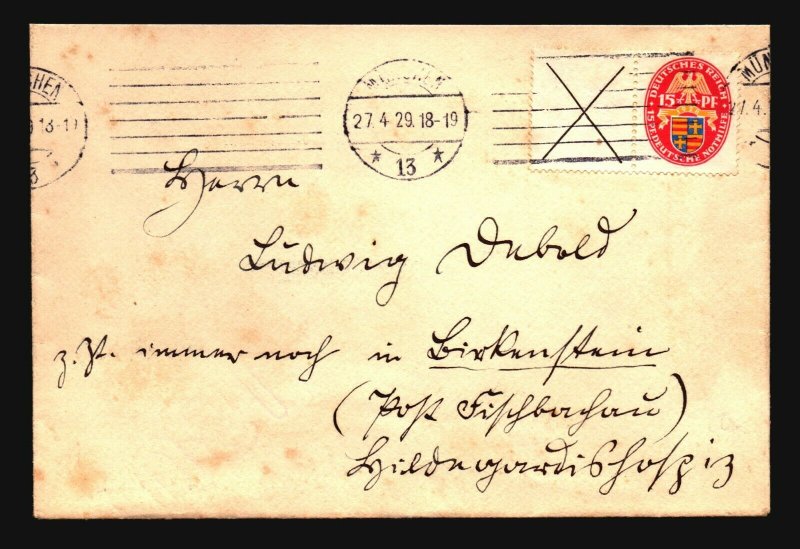 MÜNCHEN
27.4.29.18-19
* 13 *
DEUTSCHES REICH
15 PF
15 PF. DEUTSCHE NOTHILFE
CHEN
MÜN
27.4.
Herrn
Ludwig Debold
z. Zt. immer noch in Birkenstein
(Post Fischbachau)
Hildegardishospiz